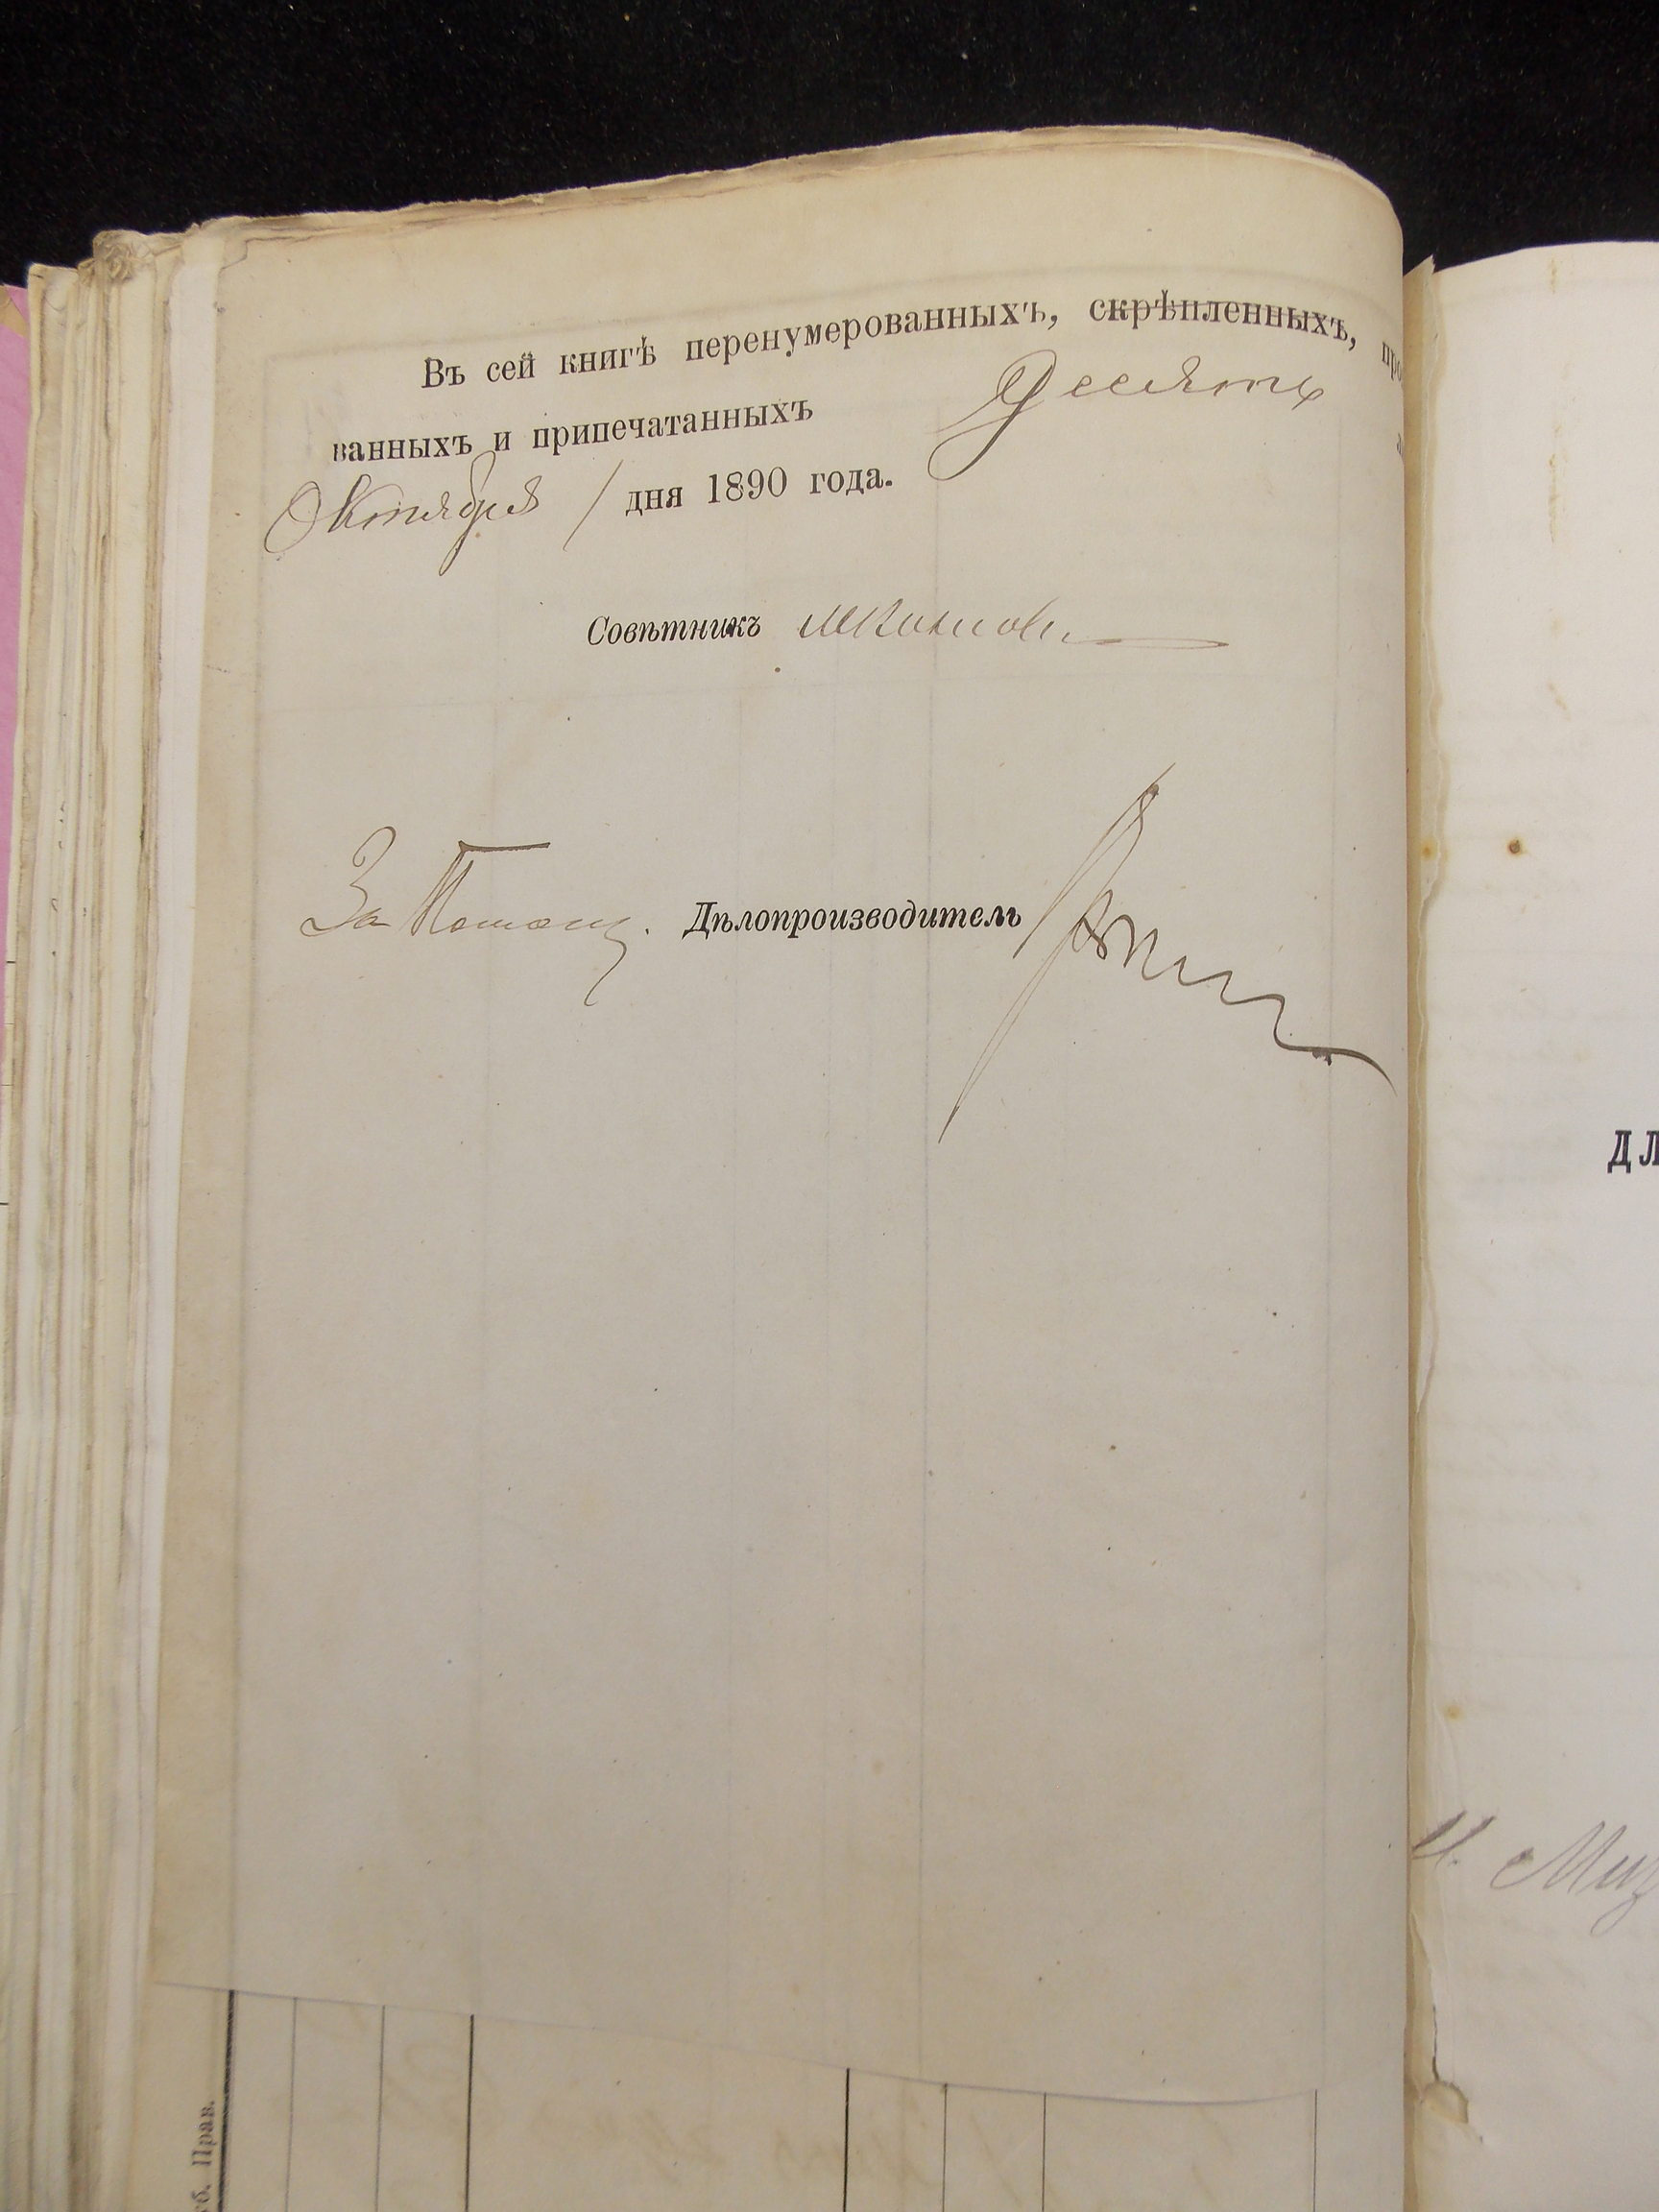 Въ сей книгѣ перенумерованныхъ, скрѣпленныхъ, про
ванныхъ и припечатанныхъ Десять
Октября 1 дня 1890 года.
Совѣтникъ
За Помощ. Дѣлопроизводитель
ДЛ
И. Миз
уб. Прав.